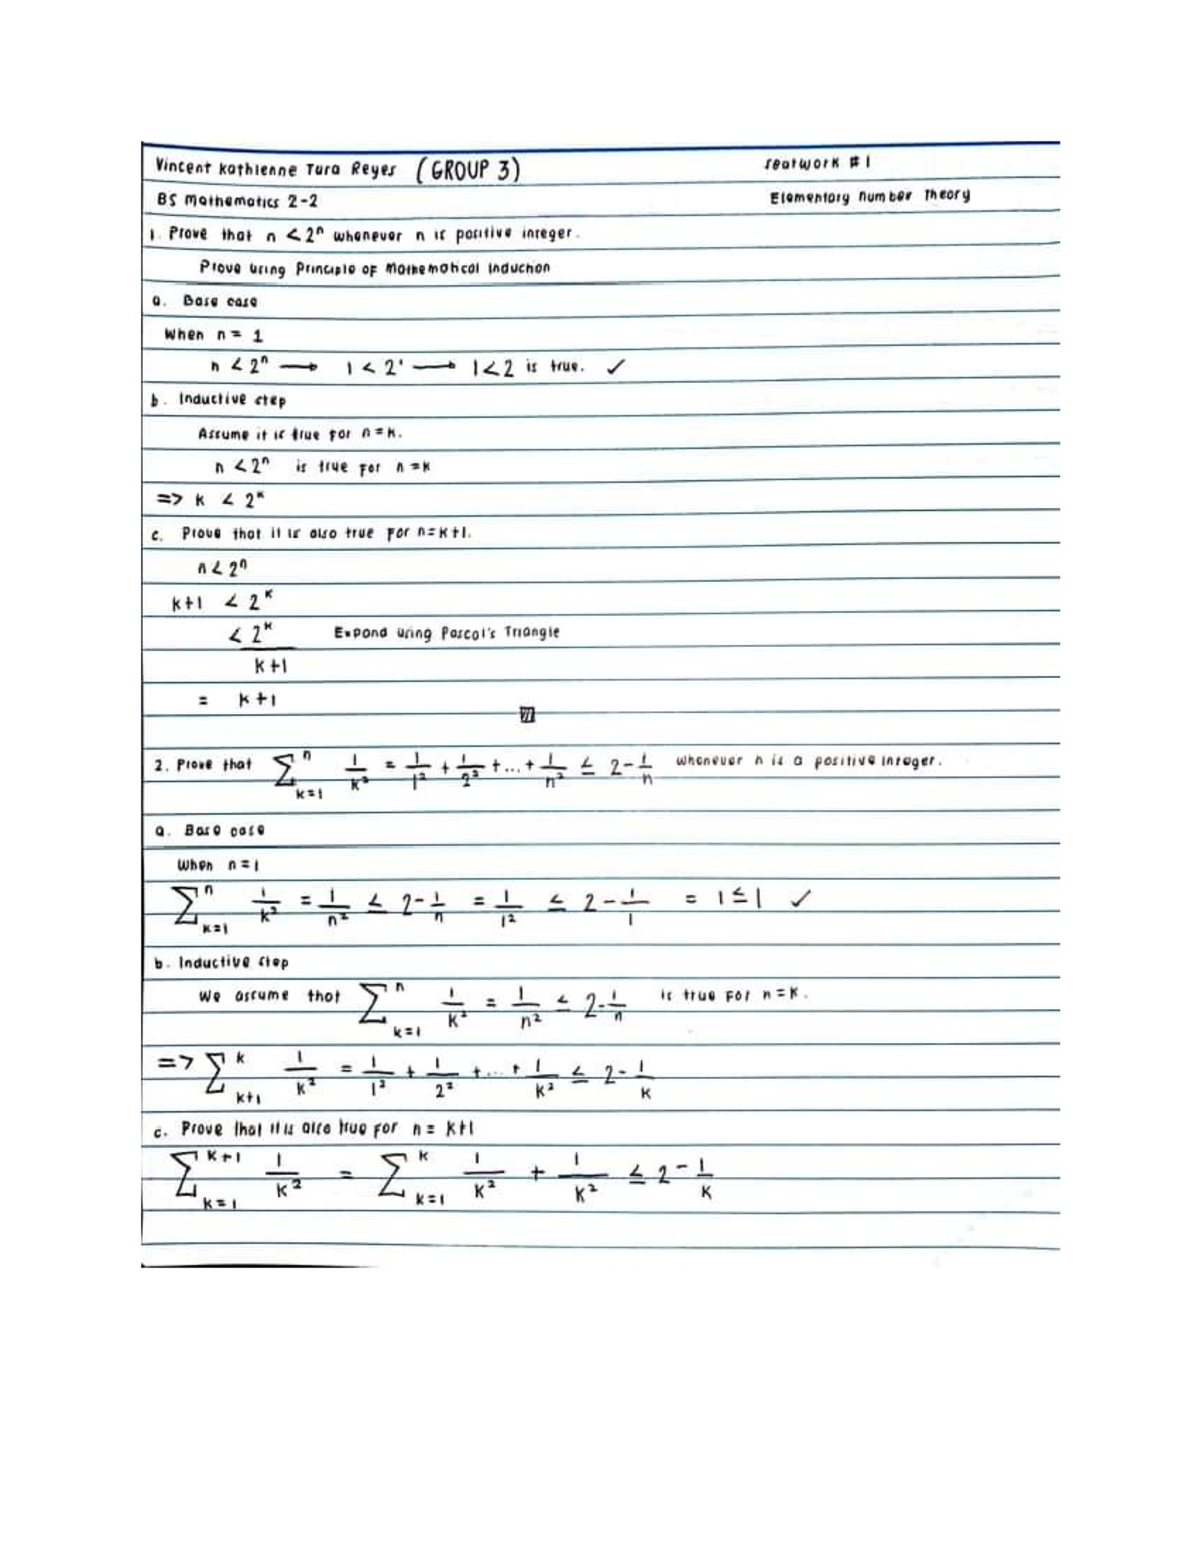 Vincent Kathienne Tura Reyes (GROUP 3) seatwork #1
BS Mathematics 2-2 Elementary Number Theory
1. Prove that n < 2ⁿ whenever n is positive integer.
Prove using Principle of Mathematical Induction
a. Base case
When n = 1
n < 2ⁿ → 1 < 2¹ → 1 < 2 is true. ✓
b. Inductive step
Assume it is true for n = k.
n < 2ⁿ is true for n = k
=> k < 2ᵏ
c. Prove that it is also true for n = k+1.
n < 2ⁿ
k+1 < 2ᵏ
< 2ᵏ Expand using Pascal's Triangle
k+1
= k+1
2. Prove that ∑ⁿₖ₌₁ 1/k² = 1/1² + 1/2² + ... + 1/n² ≤ 2 - 1/n whenever n is a positive integer.
a. Base case
When n = 1
∑ⁿₖ₌₁ 1/k² = 1/n² ≤ 2 - 1/n = 1/1² ≤ 2 - 1/1 = 1 ≤ 1 ✓
b. Inductive step
We assume that ∑ⁿₖ₌₁ 1/k² = 1/n² ≤ 2 - 1/n is true for n = k.
=> ∑ᵏₖ₊₁ 1/k² = 1/1² + 1/2² + ... + 1/k² ≤ 2 - 1/k
c. Prove that it is also true for n = k+1
∑ᵏ⁺¹ₖ₌₁ 1/k² = ∑ᵏₖ₌₁ 1/k² + 1/k² ≤ 2 - 1/k